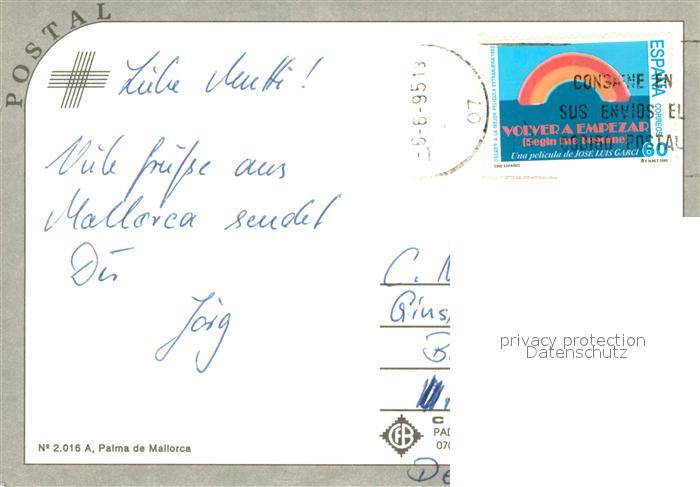 POSTAL
Liebe Mutti!
Viele Grüße aus
Mallorca sendet
Dir
Jörg
Nº 2.016 A, Palma de Mallorca
-6-6-95 18
07
CONSIGNE EN
SUS ENVIOS EL
CODIGO POSTAL
OSCAR A LA MEJOR PELICULA EXTRANJERA 1982
ESPAÑA CORREOS
VOLVER A EMPEZAR
(Begin the Beguine)
Una película de JOSE LUIS GARCI
60
CINE ESPAÑOL
F.N.M.T. 1995
C.
B
CB
PAD
070
De
privacy protection
Datenschutz